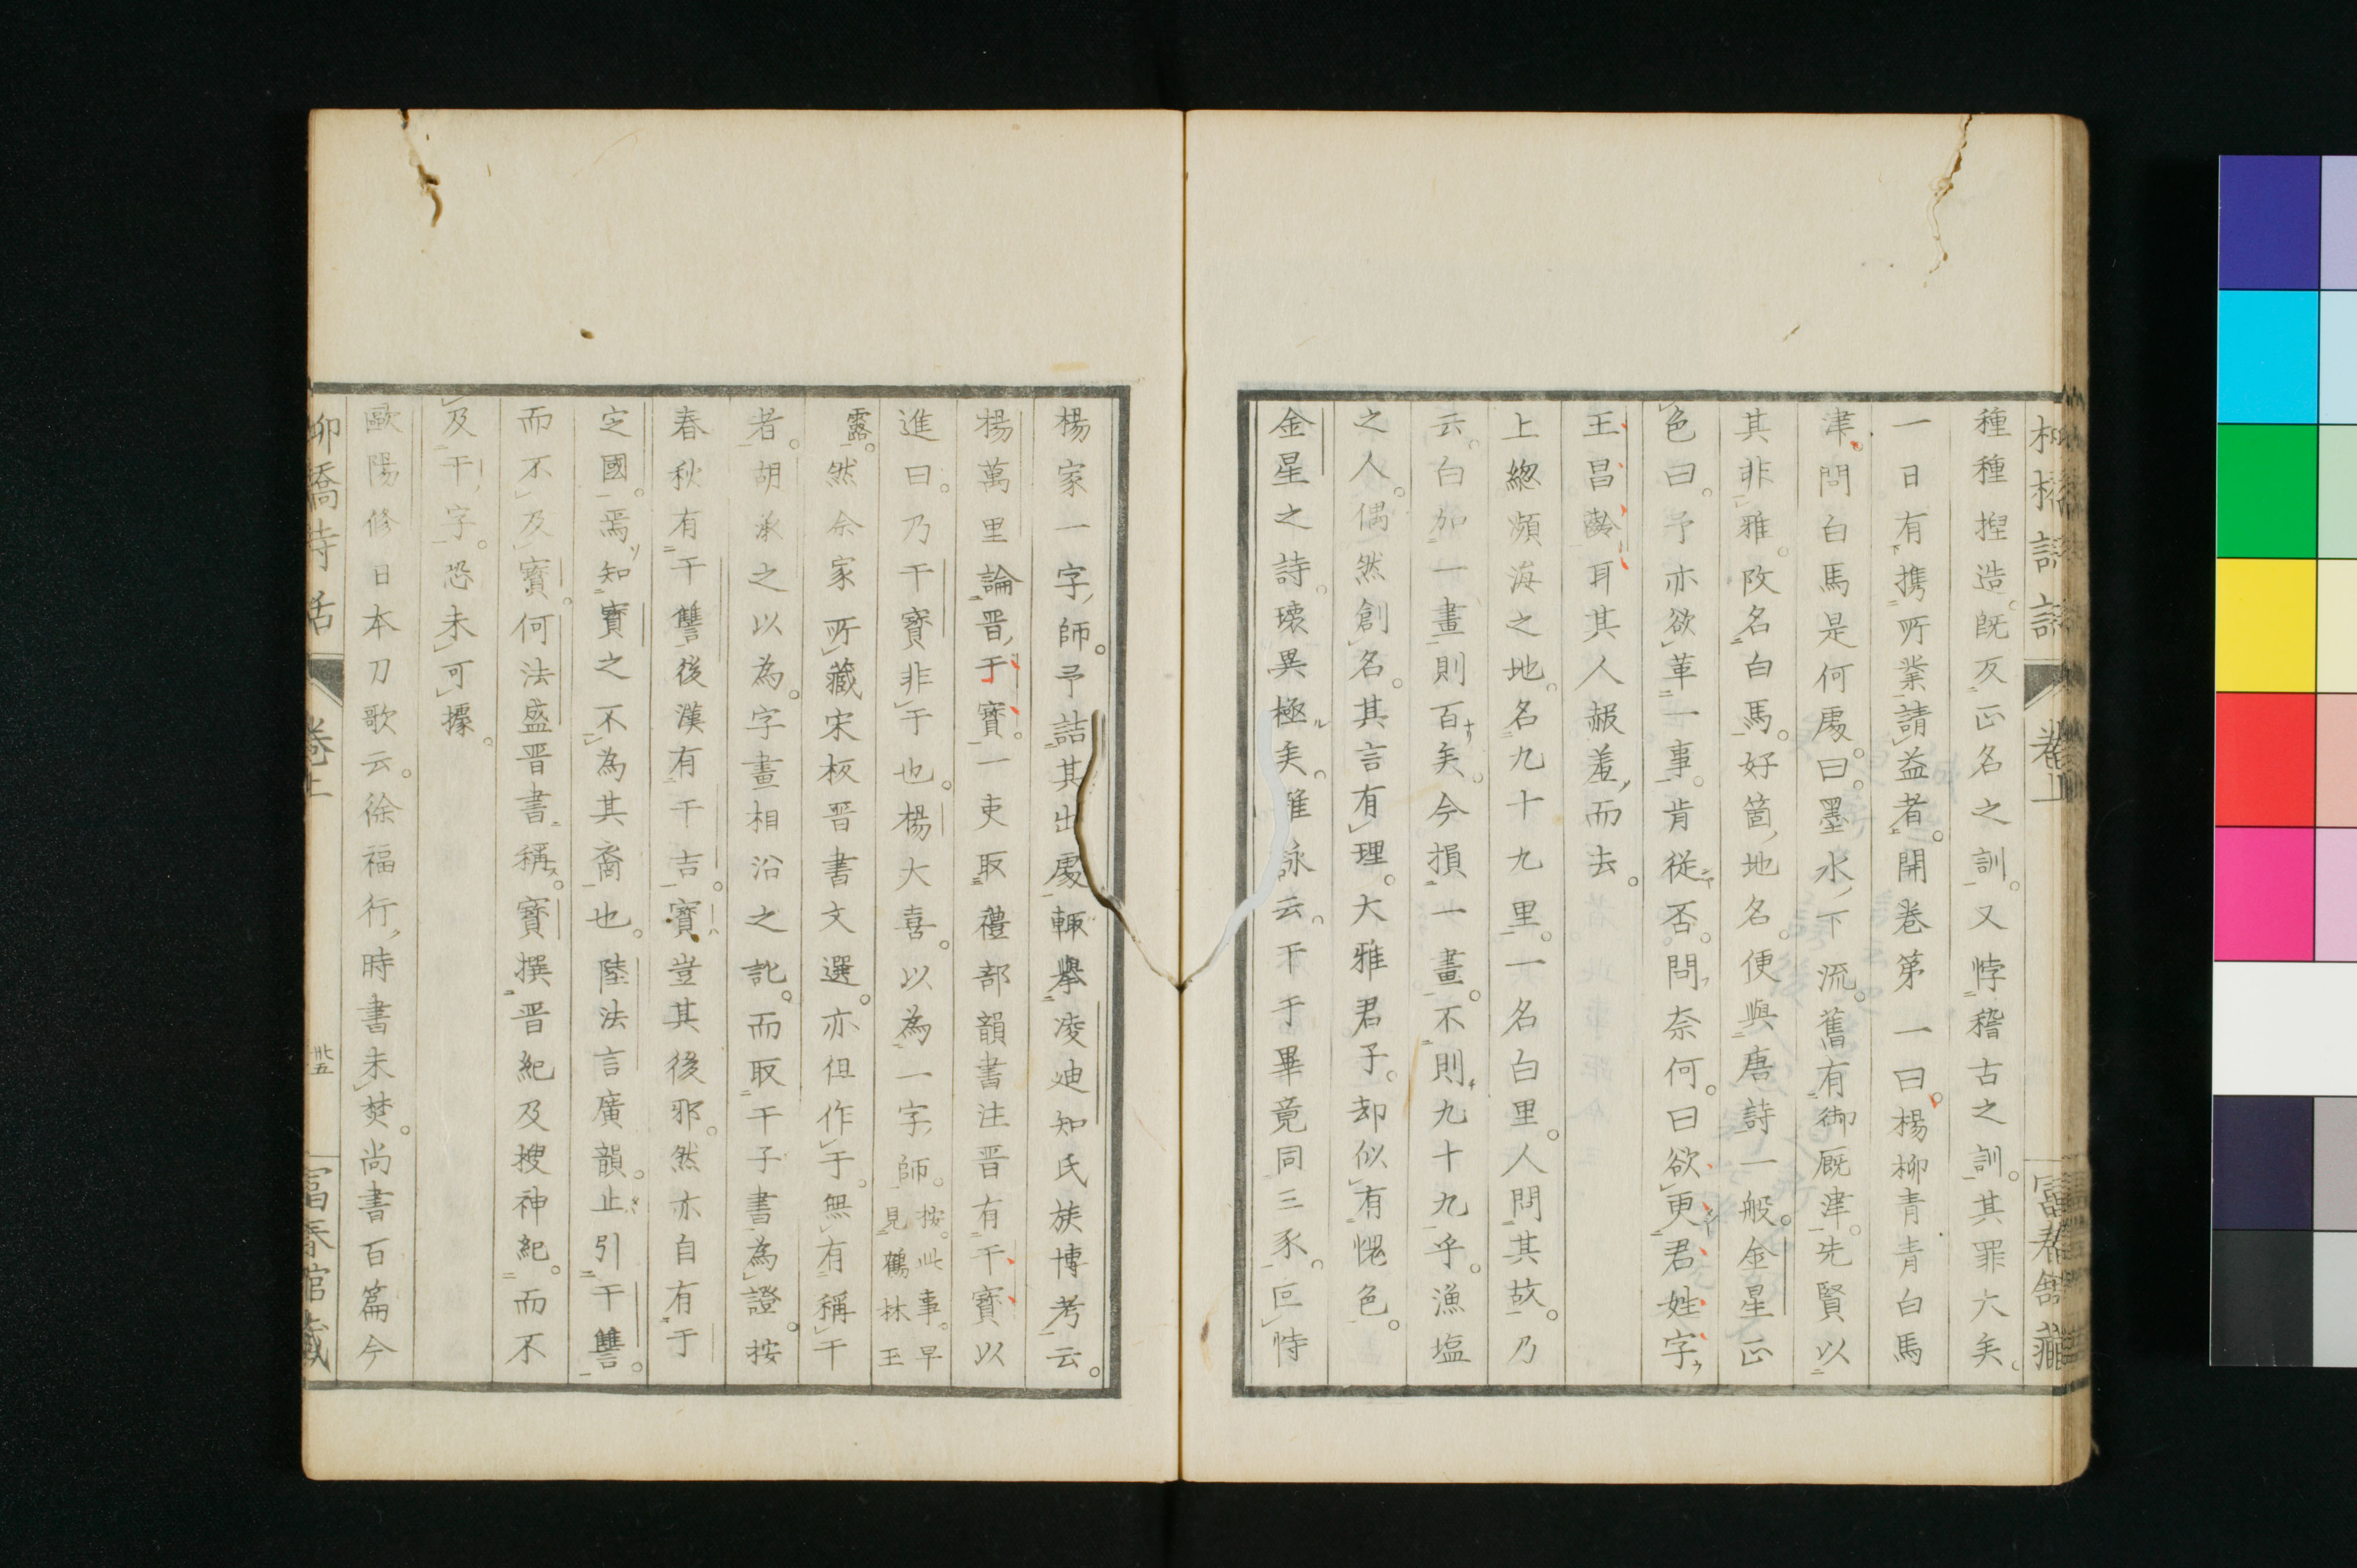 種種捏造既反正名之訓又悖稽古之訓其罪大矣
一日有携所業請益者開巻第一曰楊柳青青白馬
津問白馬是何處曰墨水下流舊有御厩津先賢以
其非雅改名白馬好箇地名便與唐詩一般金星正
色曰予亦欲革一事肯從否問奈何曰欲更君姓字
王昌齡耳其人赧羞而去
上総瀕海之地名九十九里一名白里人問其故乃
云白加一畫則百矣今損一畫不則九十九乎漁塩
之人偶然創名其言有理大雅君子却似有愧色
金星之詩瓌異極矣雅詠云干于畢竟同三豕叵恃
楊家一字師予詰其出處輙擧凌迪知氏族博考云
楊萬里論晋于寶一吏取禮部韻書注晋有干寶以
進曰乃干寶非于也楊大喜以為一字師按此事早見鶴林玉
露然余家所藏宋板晋書文選亦但作于無有稱干
者胡承之以為字畫相沿之訛而取干子書為證按
春秋有干犨後漢有干吉寶豈其後邪然亦自有于
定國焉知寶之不為其裔也陸法言廣韻止引干犨
而不及寶何法盛晋書稱寶撰晋紀及搜神紀而不
及干字恐未可據
歐陽修日本刀歌云徐福行時書未焚尚書百篇今
柳橋詩話 巻上 卅五 富春館藏